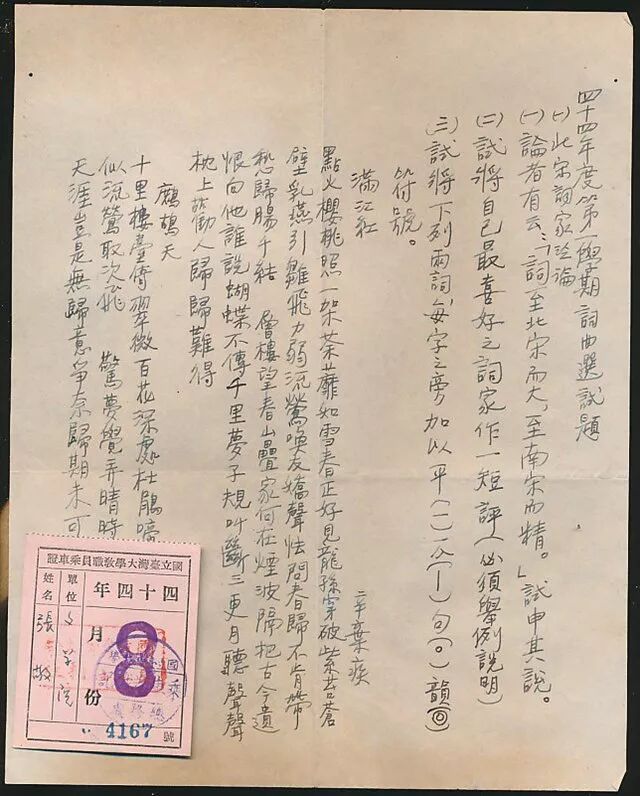 四十四年度第一學期詞曲選試題
㈠北宋詞家泛論
㈠論者有云:「詞至北宋而大,至南宋而精。」試申其說。
㈡試將自己最喜好之詞家作一短評(必須舉例說明)
㈢試將下列兩詞,每字之旁加以平(一)仄(丨)句(○)韻(◎)
符號。
滿江紅 辛棄疾
點火櫻桃照一架荼蘼如雪春正好見龍孫穿破紫苔蒼
壁乳燕引雛飛力弱流鶯喚友嬌聲怯問春歸不肯帶
愁歸腸千結 層樓望春山疊家何在煙波隔把古今遺
恨向他誰說蝴蝶不傳千里夢子規叫斷三更月聽聲聲
枕上勸人歸歸難得
鷓鴣天
十里樓臺倚翠微百花深處杜鵑啼
似流鶯取次飛 驚夢覺弄晴時
天涯豈是無歸意爭奈歸期未可
國立臺灣大學教職員乘車證
四十四年
8
月份
單位 文學院
姓名 張敬
4167 號